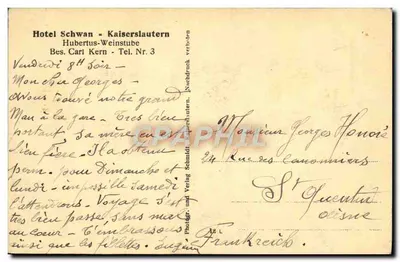 Hotel Schwan - Kaiserslautern
Hubertus-Weinstube
Bes. Carl Kern - Tel. Nr. 3
Vendredi 8H soir -
Mon cher Georges -
Avons trouvé notre grand
Max à la gare - Très bien
portant sa mère en est
bien fière. Il a obtenu
perm. pour Dimanche et
lundi - impossible Samedi
l'attendrons - Voyage s'est
très bien passé, sans mal
au cœur - T'embrassons
ainsi que les fillettes. Eugène
Photogr. und Verlag Schmidt, Kaiserslautern, Nachdruck verboten
CPAPHIL
Monsieur Georges Honoré
24 Rue des Canonniers
St Quentin
Aisne
Frankreich.